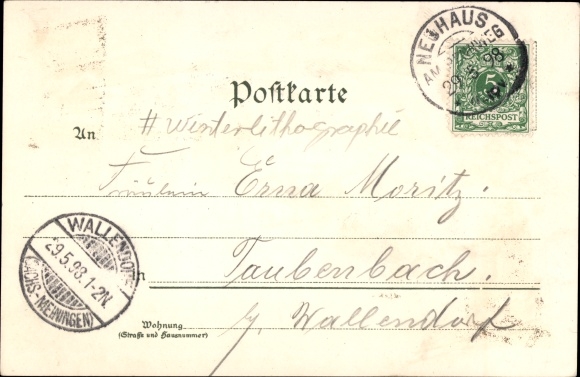 NEUHAUS
AM RENNWEG
29.5.98
5
REICHSPOST
Postkarte
An
#Winterlithographie
Fräulein Erna Moritz.
WALLENDORF
29.5.98.1-2N.
(SACHS-MEININGEN)
in
Taubenbach.
Wohnung
(Straße und Hausnummer)
b/ Wallendorf